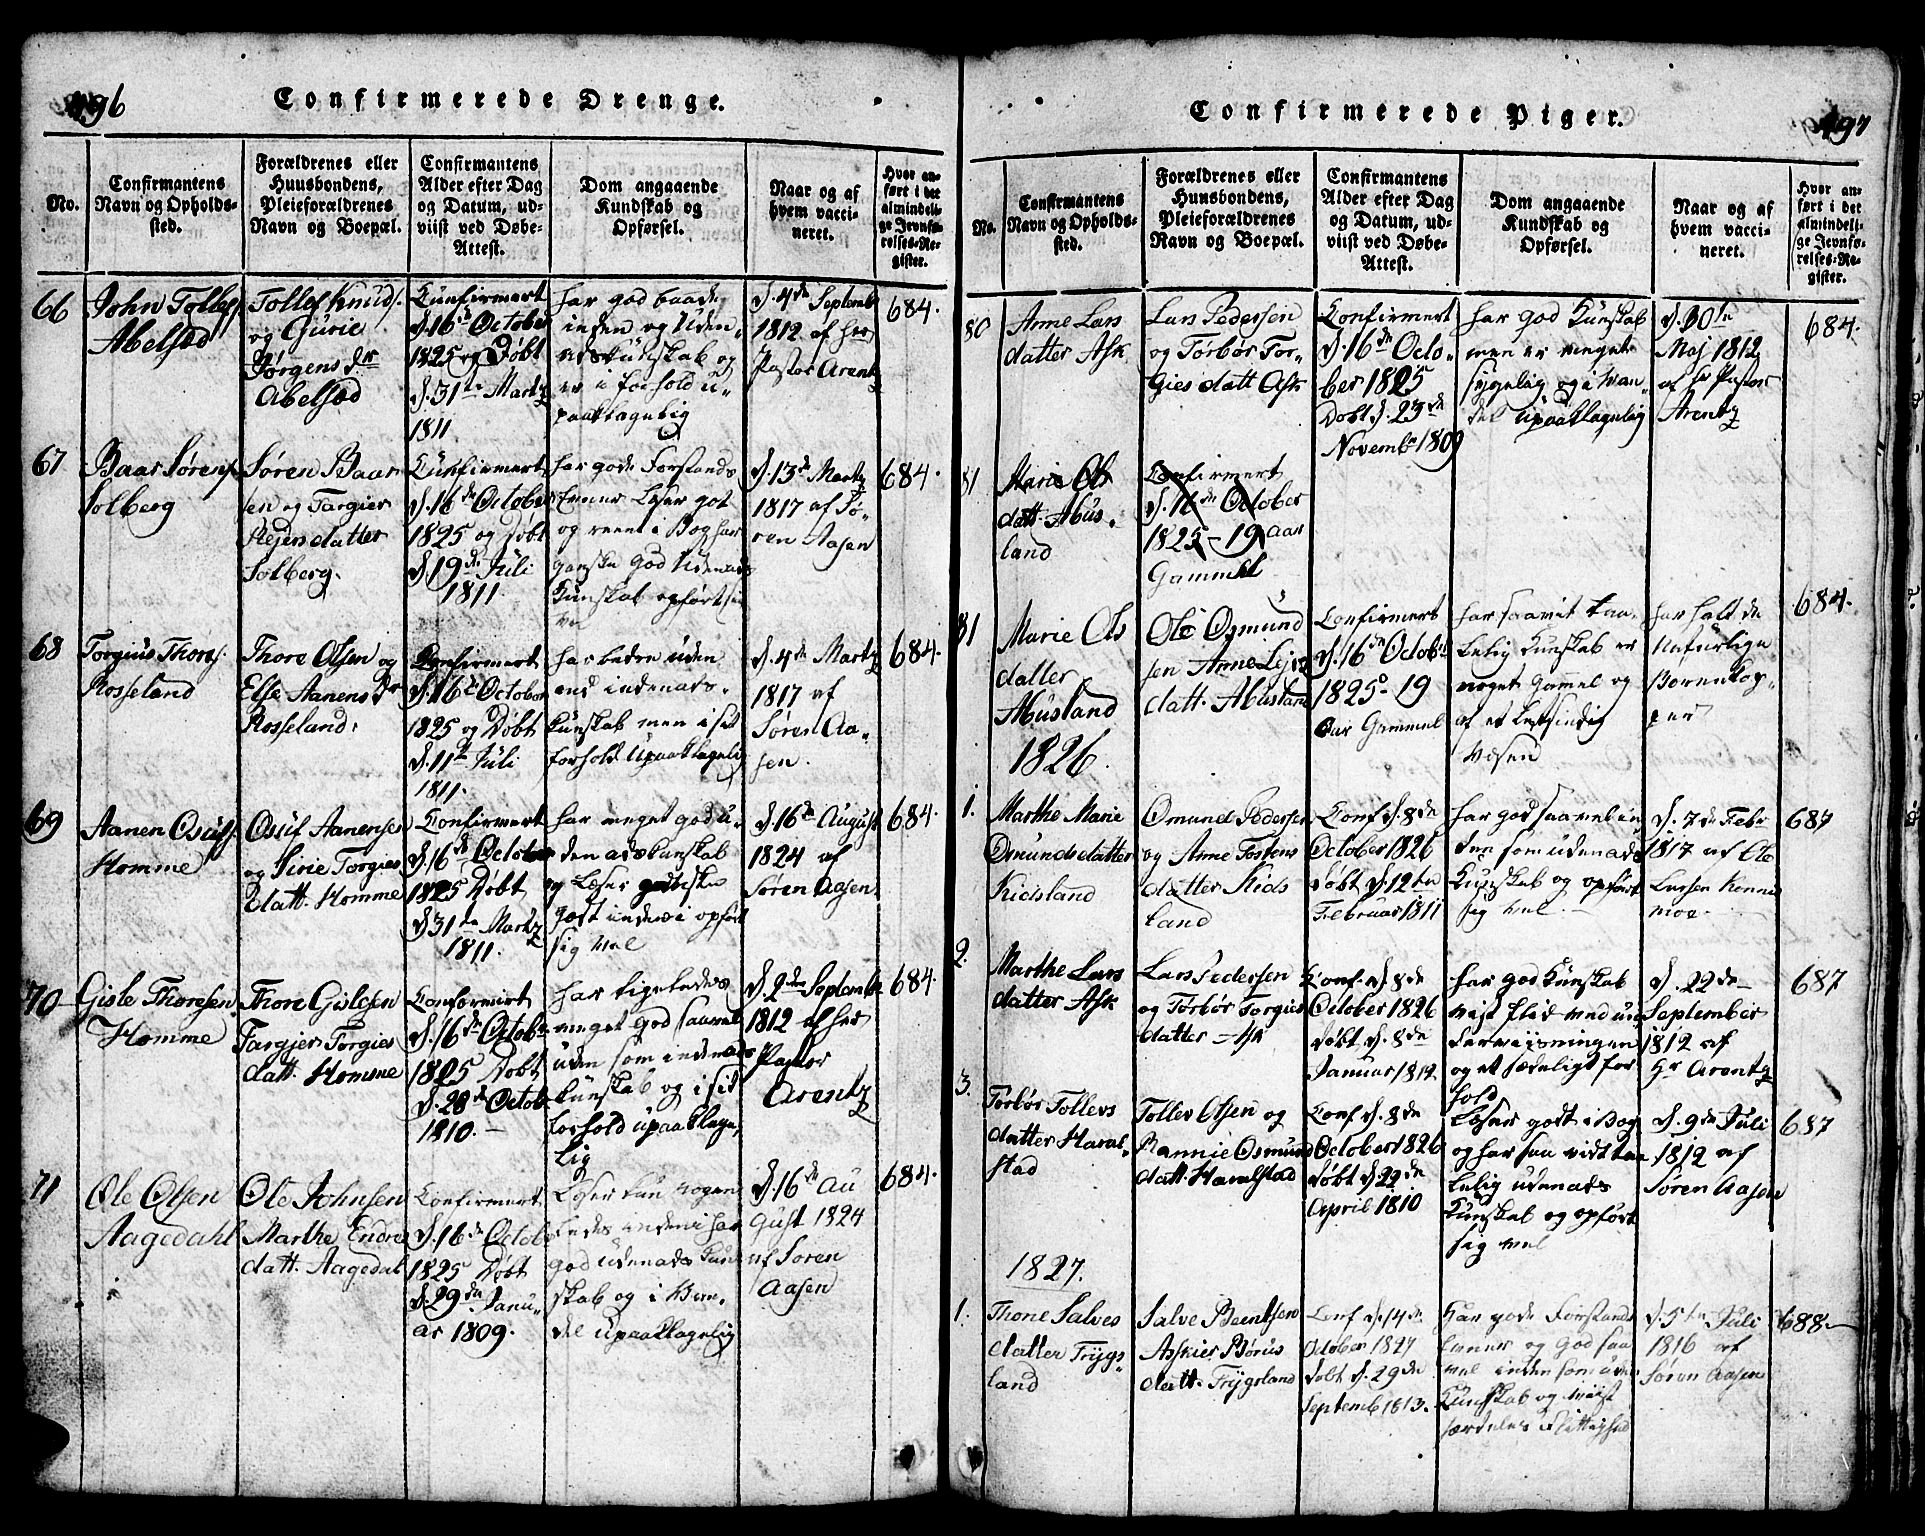 496
Confirmerede Drenge.
No.
Confirmantens
Navn og Opholds-
sted.
Forældrenes eller
Huusbondens,
Pleieforældrenes
Navn og Boepæl.
Confirmantens
Alder efter Dag
og Datum, ud-
viist ved Døbe-
Attest.
Dom angaaende
Kundskab og
Opførsel.
Naar og af
hvem vacci-
neret.
Hvor an-
ført i det
almindeli-
ge Jevnfø-
relses-Re-
gister.
66
John Tollefs.
Abelsæd
Tollef Knuds.
og Gurie
Jørgens dr
Abelsæd
Confirmert
d. 16de October
1825 og Døbt
d. 31te Martz
1811
har god baade
inden og Uden-
adskundskab og
er i forhold u-
paaklagelig
d. 4de Septemb
1812 af her
Pastor Arentz
684.
67
Baar Sørens.
Solberg
Søren Baar
sen og Targier
datter
Solberg.
Confirmert
d. 16de October
1825 og Døbt
d. 19de Juli
1811
har gode Forstands
Evner Leser got
og reent i Bog har
ganske God Udenads
Kunskab opført sig
vel
d. 13de Martz
1817 af Sø-
ren Aasen
684.
68
Torgius Thores.
Rosseland
Thore Olsen og
Else Aanens dr
Rosseland.
Confirmert
d. 16de October
1825 og Døbt
d. 11te Juli
1811.
har bedre uden
end indenads-
kunskab men i sit
forhold Upaaklagelig
d. 4de Martz
1817 af
Søren Aa-
sen.
684.
69
Aanen Osufs.
Homme
Osuf Aanensen
og Sirie Torgies
datt. Homme
Confirmert
d. 16de October
1825 Døbt
d. 31te Martz
1811.
har meget god u-
den adskunskab
og Læser
opført
sig vel
d. 16de August
1824 af
Søren Aasen
684.
70
Gisle Thoresen
Homme
Thore Gislesen
Targjer Torgies
datt. Homme
Confirmirt
d. 16de Octobr
1825 Døbt
d. 28de Octob
1810.
har ligeledes
meget God saavel
uden som indenads
kunskab og i sit
forhold upaaklage-
lig
d. 2den Septembr
1812 af her
Pastor
Arentz
684.
71
Ole Olsen
Aagedahl
Ole Johnsen
Marthe Endre
datt. Aagedal
Confirmert
d. 16de Octob
1825 Døbt
d. 29de Janu-
ar 1809.
Leser kun nogen
ledes indeni har
god udenads Kun
skab og i Van-
del upaaklagelig
d. 16de Au
gust 1824
af Søren
Aasen
684.
497
Confirmerede Piger.
No.
Confirmantens
Navn og Opholds-
sted.
Forældrenes eller
Huusbondens,
Pleieforældrenes
Navn og Boepæl.
Confirmantens
Alder efter Dag
og Datum, ud-
viist ved Døbe-
Attest.
Dom angaaende
Kundskab og
Opførsel.
Naar og af
hvem vacci-
neret.
Hvor an-
ført i det
almindeli-
ge Jevnfø-
relses-Re-
gister.
80
Anne Lars
datter Ask
Lars Pedersen
og Tørbør Tor-
gies datt Ask
Confirmert
d. 16de Octo-
ber 1825
Døbt d. 23de
Novembr 1809
har god Kunskab
men er meget
sygelig og i Van-
del Upaaklagelig
d. 30te
Maj 1812
af hr Pastor
Arentz
684.
81
Marie Ols
datt. Abus-
land
Confirmert
d. 16de October
1825 - 19 aar
Gammel
81
Marie Ols
datter
Abusland
Ole Osmund
sen Anne
datt. Abusland
Confirmert
d. 16de Octobr
1825 - 19
aar Gammel
har saavit taa-
lelig Kunskab er
noget Gammel og
af et Letsindig
Væsen
har hatt de
Naturlige
Børenkop-
per
684.
1826.
1.
Marthe Marie
Omundsdatter
Kidsland
Omund Pedersen
og Anne Tostens
datter Kids
land
Conf d. 8de
October 1826
døbt d. 12ten
Februar 1811
har god saavel in
den som udenads
Kunskab og opført
sig vel.
d. 7de Febr
1817 af Ole
Larsen Kenne
moe.
687
2.
Marthe Lars
datter Ask
Lars Pedersen
og Tørbør Torgies
datter - Ask
Conf d. 8de
October 1826
døbt d. 8de
Januar 1812.
har god Kunskab
viist flid ved un
derviisningen
og et sædeligt for
hold
d. 22de
September
1812 af
hr Arentz
687
3.
Tørbør Tollevs
datter Haval-
stad
Tollev Olsen og
Rannie Osmund
datt. Havalstad
Conf. d. 8de
October 1826
døbt d. 22de
April 1810
Læser godt i Bog
og har saa vidt taa
lelig udenads
Kunskab og opført
sig vel
d. 9de Juli
1812 af
Søren Aasen
687
1827.
1.
Thone Salves
datter Trygs-
land
Salve Beentsen
Askier Børus
datt. Trygsland
Conf d. 14de
October 1827
døbt d. 29de
Septemb 1813.
Har gode Forstands
Evner og God saa
vel inden som uden
Kundskab og viist
særdeles Flittighed
d. 5te Juli
1816 af
Søren Aasen
688.